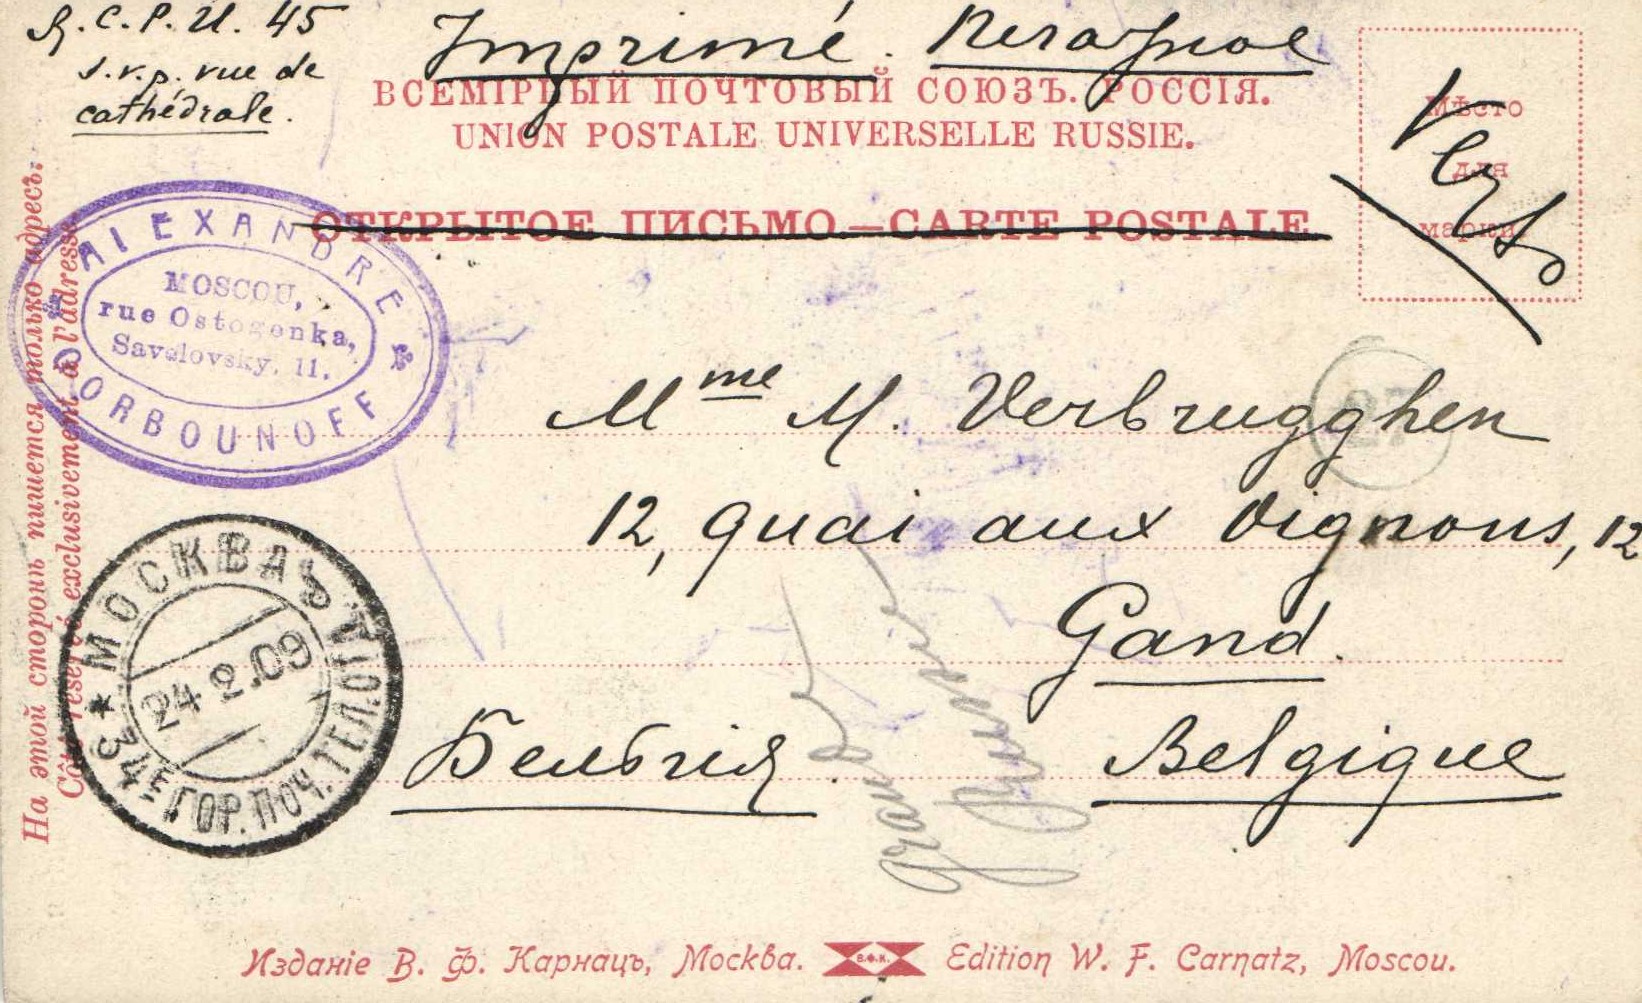 G.C.P.U. 45
s.v.p. vue de
cathédrale.
Imprimé. Печатное
ВСЕМІРНЫЙ ПОЧТОВЫЙ СОЮЗЪ. РОССІЯ.
UNION POSTALE UNIVERSELLE RUSSIE.
ОТКРЫТОЕ ПИСЬМО—CARTE POSTALE
Мѣсто
для
марки
Verso
На этой сторонѣ пишется только адресъ.
Côté réservé exclusivement à l'adresse.
ALEXANDRE
MOSCOU,
rue Ostogenka,
Savelovsky, 11.
GORBOUNOFF
Mme M. Verbrugghen
12, quai aux Oignons, 12
Gand.
Бельгія.
Belgique
МОСКВА
24.2.09
34Е ГОР. ПОЧ. ТЕЛ. ОТД.
Изданіе В. Ф. Карнацъ, Москва.
В.Ф.К.
Edition W. F. Carnatz, Moscou.